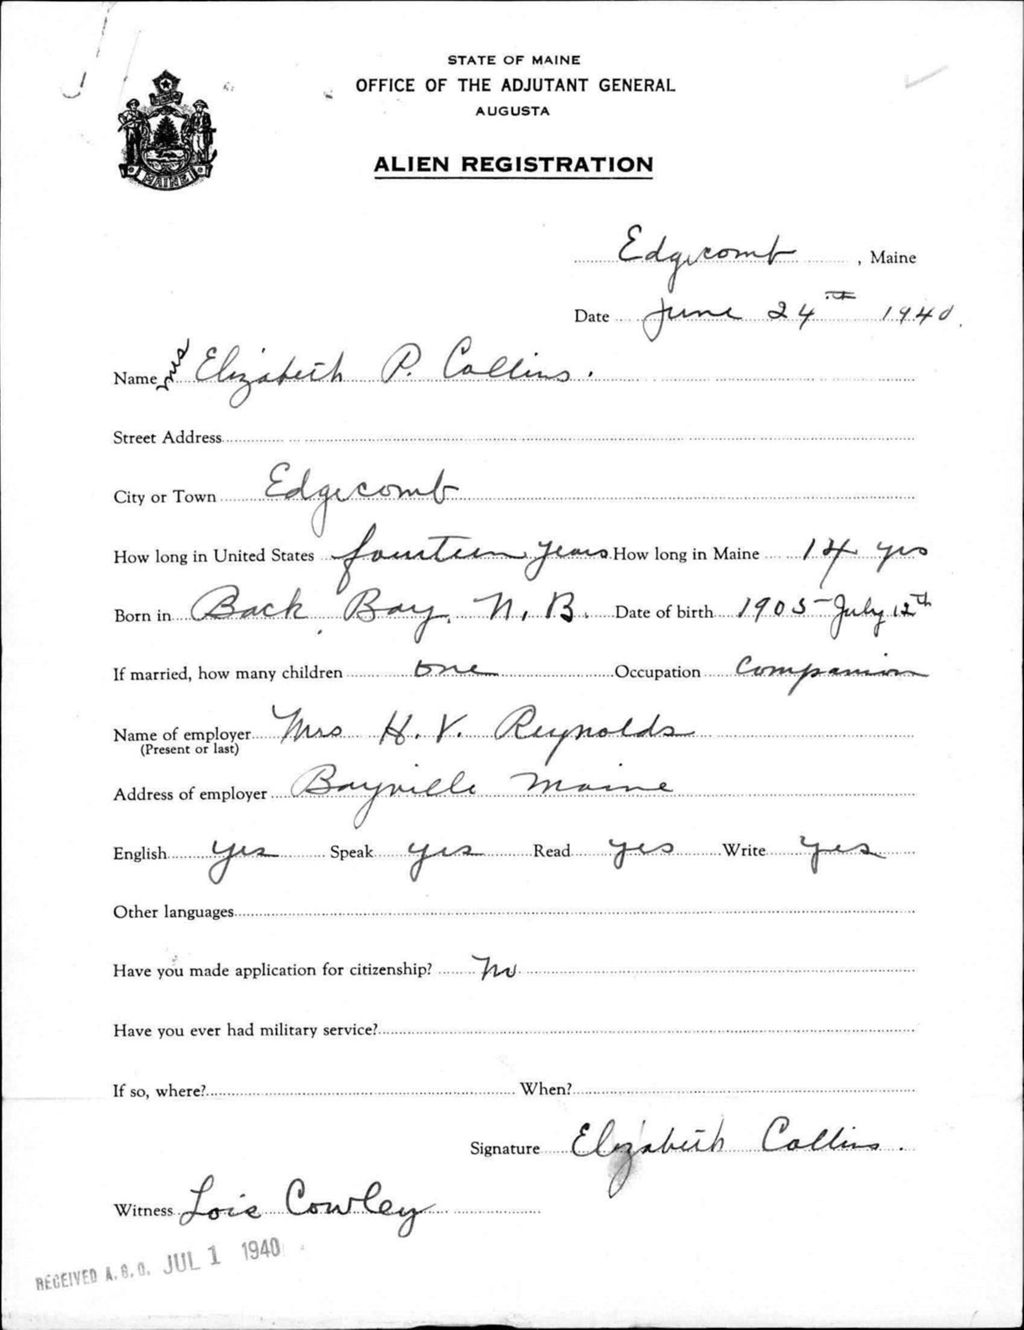 STATE OF MAINE
OFFICE OF THE ADJUTANT GENERAL
AUGUSTA
ALIEN REGISTRATION
MAINE
Edgecomb, Maine
Date June 24th 1940.
Name Mrs Elizabeth P. Collins.
Street Address
City or Town Edgecomb
How long in United States fourteen years How long in Maine 14 yrs
Born in Back Bay, N. B. Date of birth 1905 - July 12th
If married, how many children one Occupation Companion
Name of employer Mrs H. V. Reynolds
(Present or last)
Address of employer Bayville Maine
English yes Speak yes Read yes Write yes
Other languages
Have you made application for citizenship? No
Have you ever had military service?
If so, where? When?
Signature Elizabeth Collins.
Witness Lois Cowley
RECEIVED A. G. O. JUL 1 1940